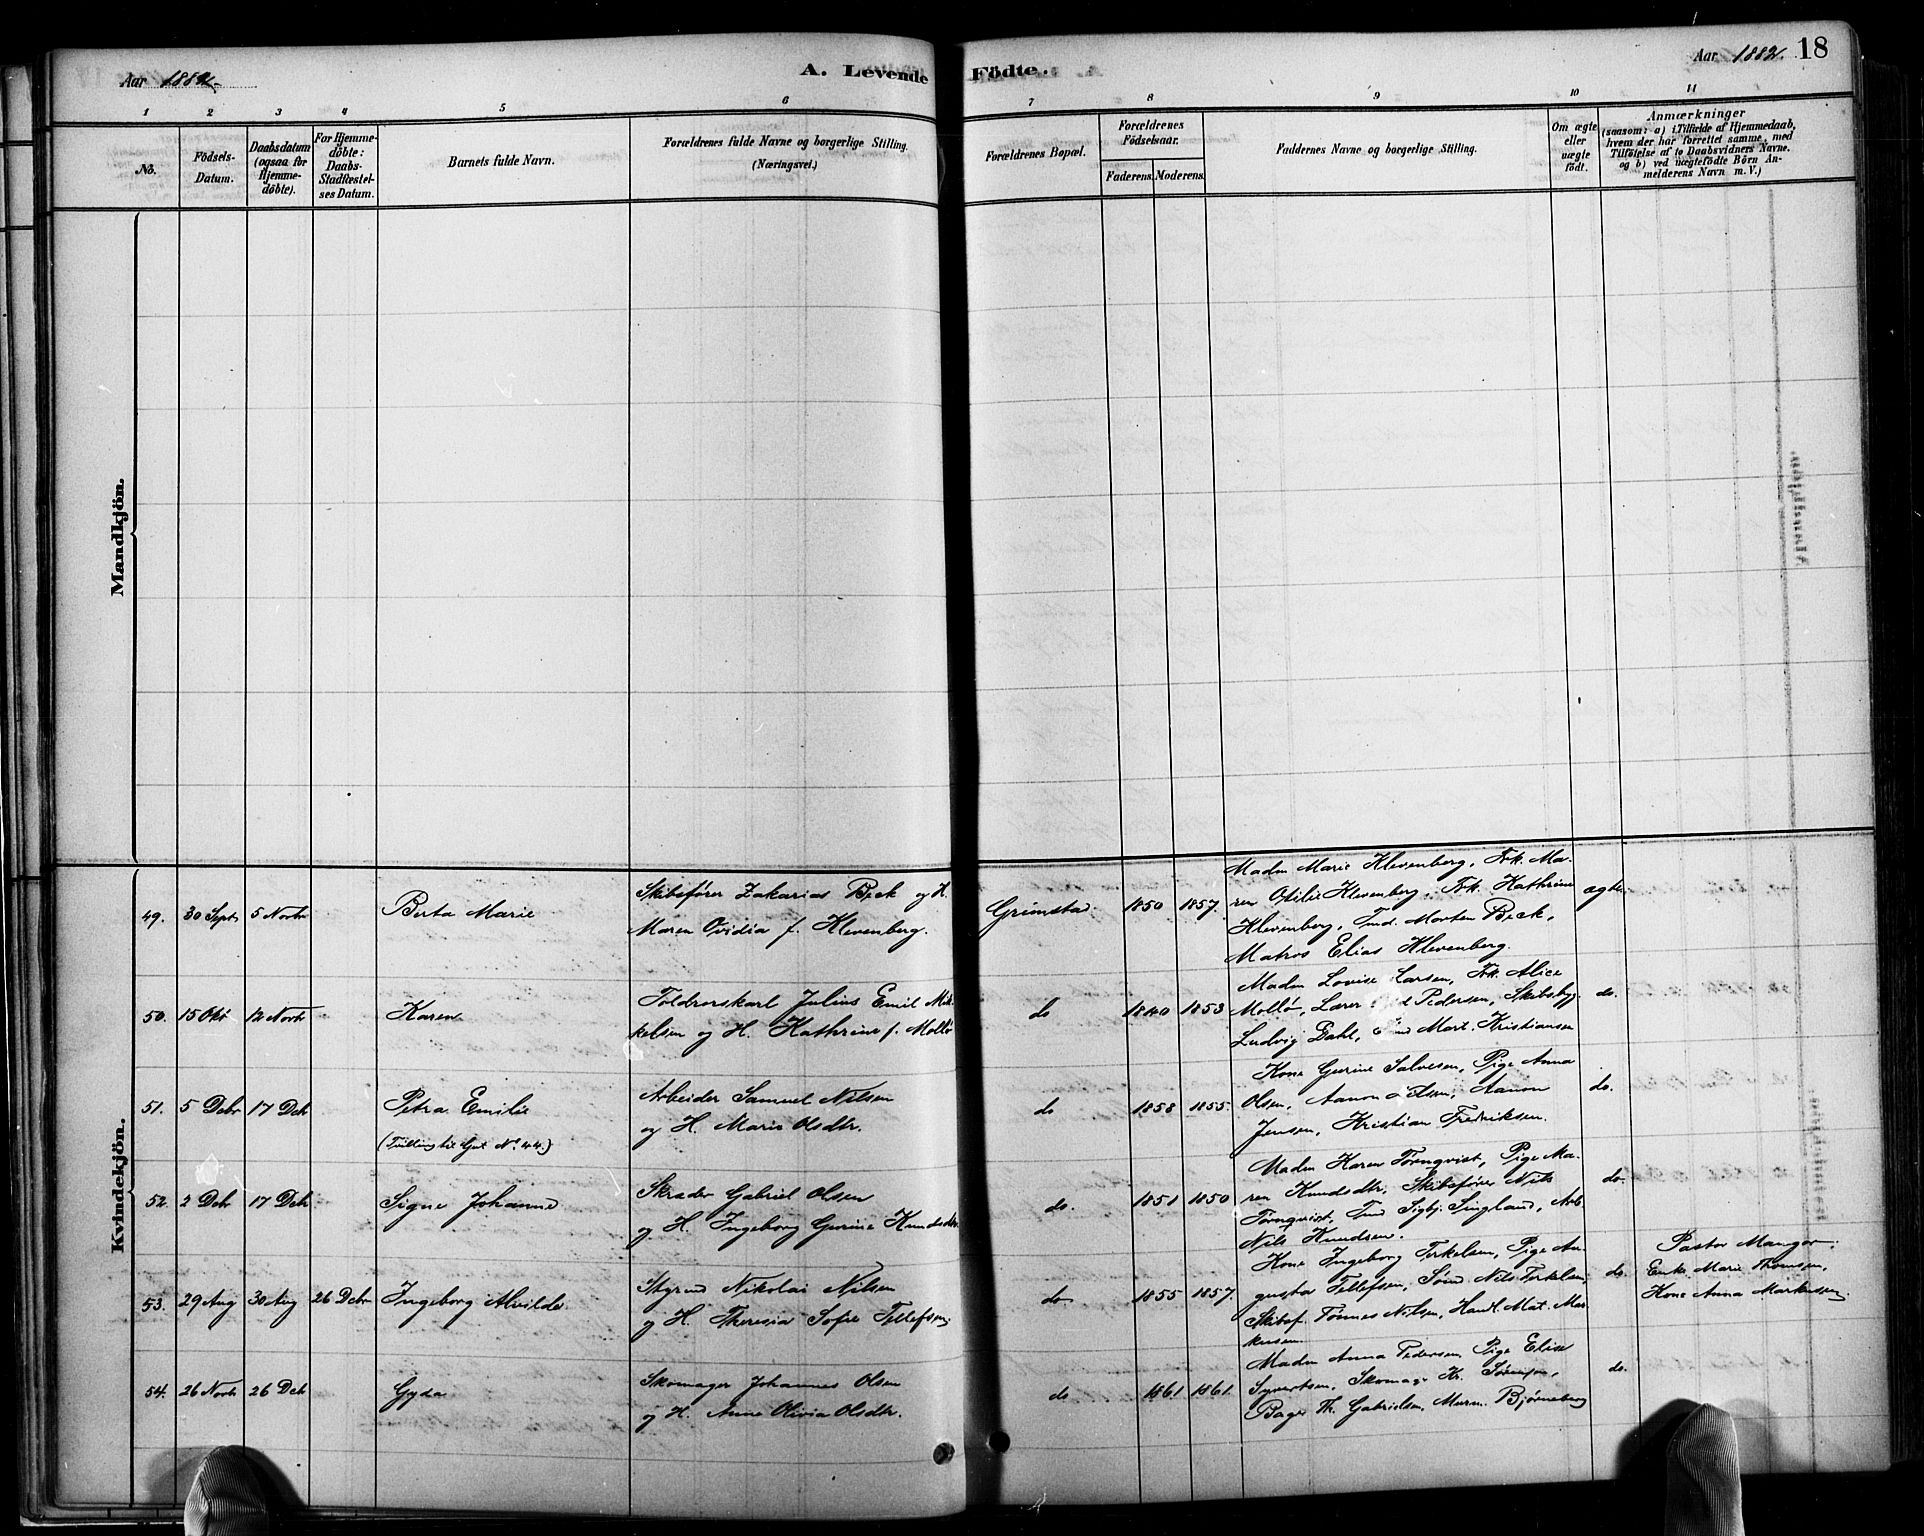 Aar 1882.
A. Levende
Födte.
Aar 1882. 18
1 2 3 4 5 6 7 8 9 10 11
No.
Födsels-
Datum.
Daabsdatum
(ogsaa för
Hjemme-
döbte).
For Hjemme-
döbte:
Daabs-
Stadfæstel-
ses Datum.
Barnets fulde Navn.
Forældrenes fulde Navne og borgerlige Stilling.
(Næringsvei.)
Forældrenes Bopæl.
Forældrenes
Födselsaar.
Faderens. Moderens.
Faddernes Navne og borgerlige Stilling.
Om ægte
eller
uægte
födt.
Anmærkninger
(saasom: a) i Tilfælde af Hjemmedaab,
hvem der har forrettet samme, med
Tilföielse af to Daabsvidners Navne.
og b) ved uægtefödte Börn An-
melderens Navn m. V.)
Mandkjön.
Kvindekjön.
49. 30 Sept 5 Novbr
Berta Marie
Skibsfører Zakarias Beck og H.
Maren Ovidia f. Klevenberg.
Grimstad 1850 1857.
Madm Marie Klevenberg, Frk. Ma-
ren Otilie Klevenberg, Frk. Kathrine
Klevenberg, Tmd. Morten Beck,
Matros Elias Klevenberg.
ægte
50. 15 Okt 12 Novbr
Karen
Toldrorskarl Julius Emil Mik-
kelsen og H. Kathrine f. Molto
do 1840 1853
Madm Lovise Larsen, Frk. Alice
Molto, Lærer Pedersen, Skibsbyg.
Ludvig Dahl, Mart. Kristiansen
do.
51. 5 Debr 17 Deb
Petra Emilie
(Tvilling til Gut No 44.)
Arbeider Samuel Nilsen
og H. Marie Olsdtr.
do 1858 1855.
Kone Gurine Salvesen, Pige Anna
Olsen, Aanon Olsen, Aanon
Jensen, Kristian Fredriksen.
do.
52. 2 Deb 17 Deb
Signe Johanne
Skræder Gabriel Olsen
og H. Ingeborg Gurine Knudsdtr.
do. 1851 1850
Madm Karen Törnqvist, Pige Ma-
ren Knudsdtr, Skibsfører Nils
Törnqvist, Tmd Sigbj. Lingland, Arb.
Nils Knudsen.
do.
53. 29 Aug 30 Aug 26 Debr
Ingeborg Alvilde
Styrmd Nikolai Nilsen
og H. Theresia Sofie Tellefsen.
do 1855 1857.
Kone Ingeborg Terkelsen, Pige Au-
gusta Tellefsen, Sømd. Nils Terkelsen,
Skibsf. Tönnes Nilsen, Handl. Mat. Mar-
kusen
do.
Pastor Manger;
Enke Marie Thomsen,
Kone Anna Markusen.
54. 26 Novb 26 Deb
Gyda
Skomager Johannes Olsen
og H. Anne Olivia Olsdtr.
do 1861 1861.
Madm Anna Pedersen, Pige Elise
Syvertsen, Skomag. Kr.
Bager Th. Gabrielsen, Murm. Bjørneberg
do.